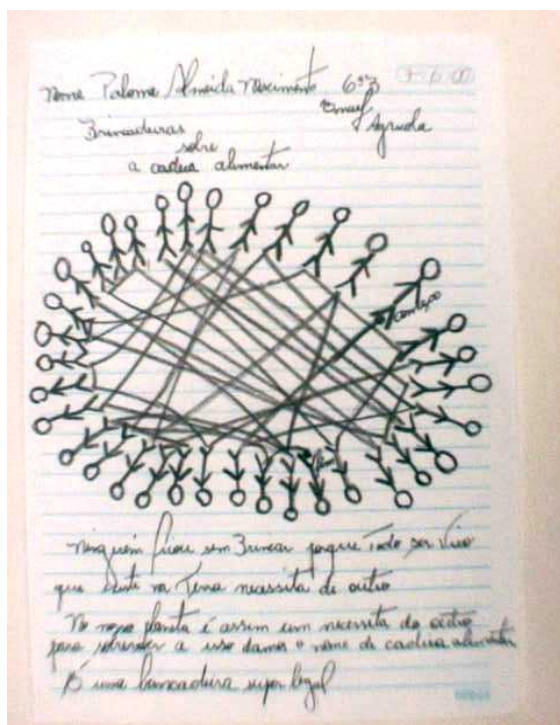 Nome Paloma Almeida Nascimento 6ª3
Emef
Agruela
Brincadeiras
sobre
a cadeia alimentar
começo
fim
Ninguém ficou sem Brincar porque Todo ser Vivo
que existe na Terra necessita de outro
No nosso planeta é assim um necessita do outro
para sobreviver a isso damos o nome de cadeia alimentar
É uma brincadeira super legal